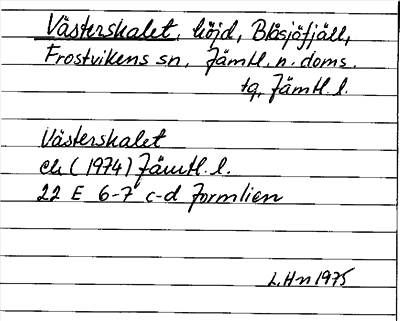 Västerskalet, höjd, Blåsjöfjäll,
Frostvikens sn, Jämtl. n. doms.
tg, Jämtl. l.
Västerskalet
ek (1974) Jämtl. l.
22 E 6-7 c-d Jormlien
L. Hn 1975